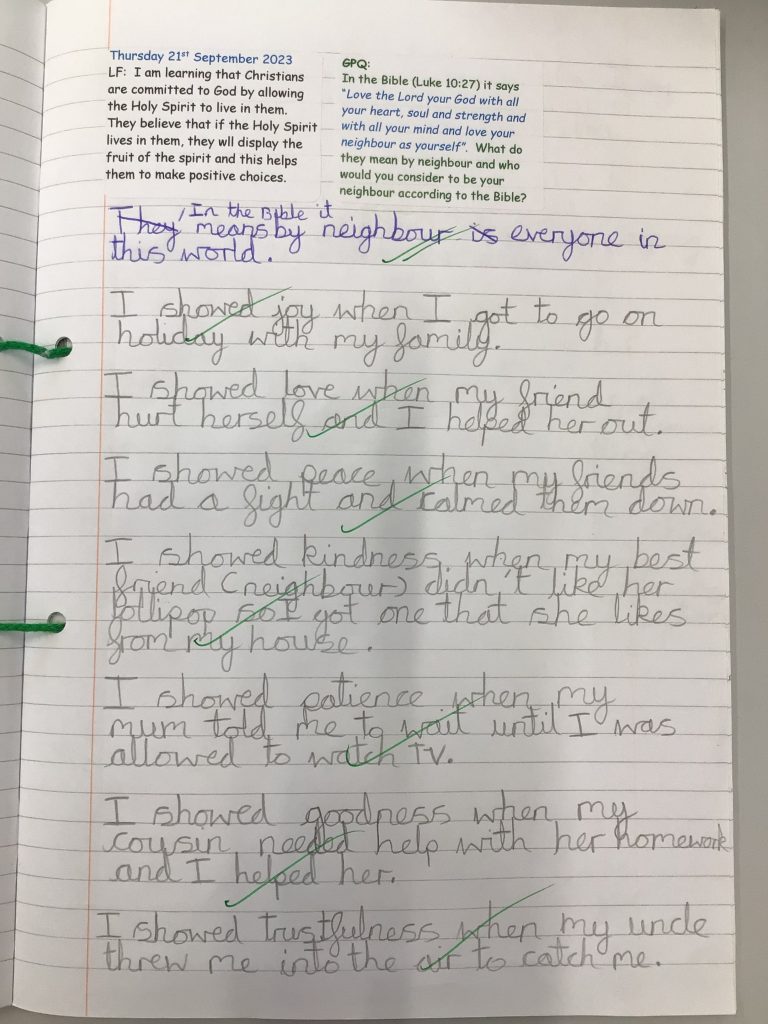 Thursday 21st September 2023
LF: I am learning that Christians
are committed to God by allowing
the Holy Spirit to live in them.
They believe that if the Holy Spirit
lives in them, they wll display the
fruit of the spirit and this helps
them to make positive choices.
GPQ:
In the Bible (Luke 10:27) it says
"Love the Lord your God with all
your heart, soul and strength and
with all your mind and love your
neighbour as yourself". What do
they mean by neighbour and who
would you consider to be your
neighbour according to the Bible?
, In the Bible it
They means by neighbour is everyone in
this world.
I showed joy when I got to go on
holiday with my family.
I showed love when my friend
hurt herself and I helped her out.
I showed peace when my friends
had a fight and calmed them down.
I showed kindness when my best
friend (neighbour) didn't like her
lollipop so I got one that she likes
from my house.
I showed patience when my
mum told me to wait until I was
allowed to watch TV.
I showed goodness when my
cousin needed help with her homework
and I helped her.
I showed trustfulness when my uncle
threw me into the air to catch me.